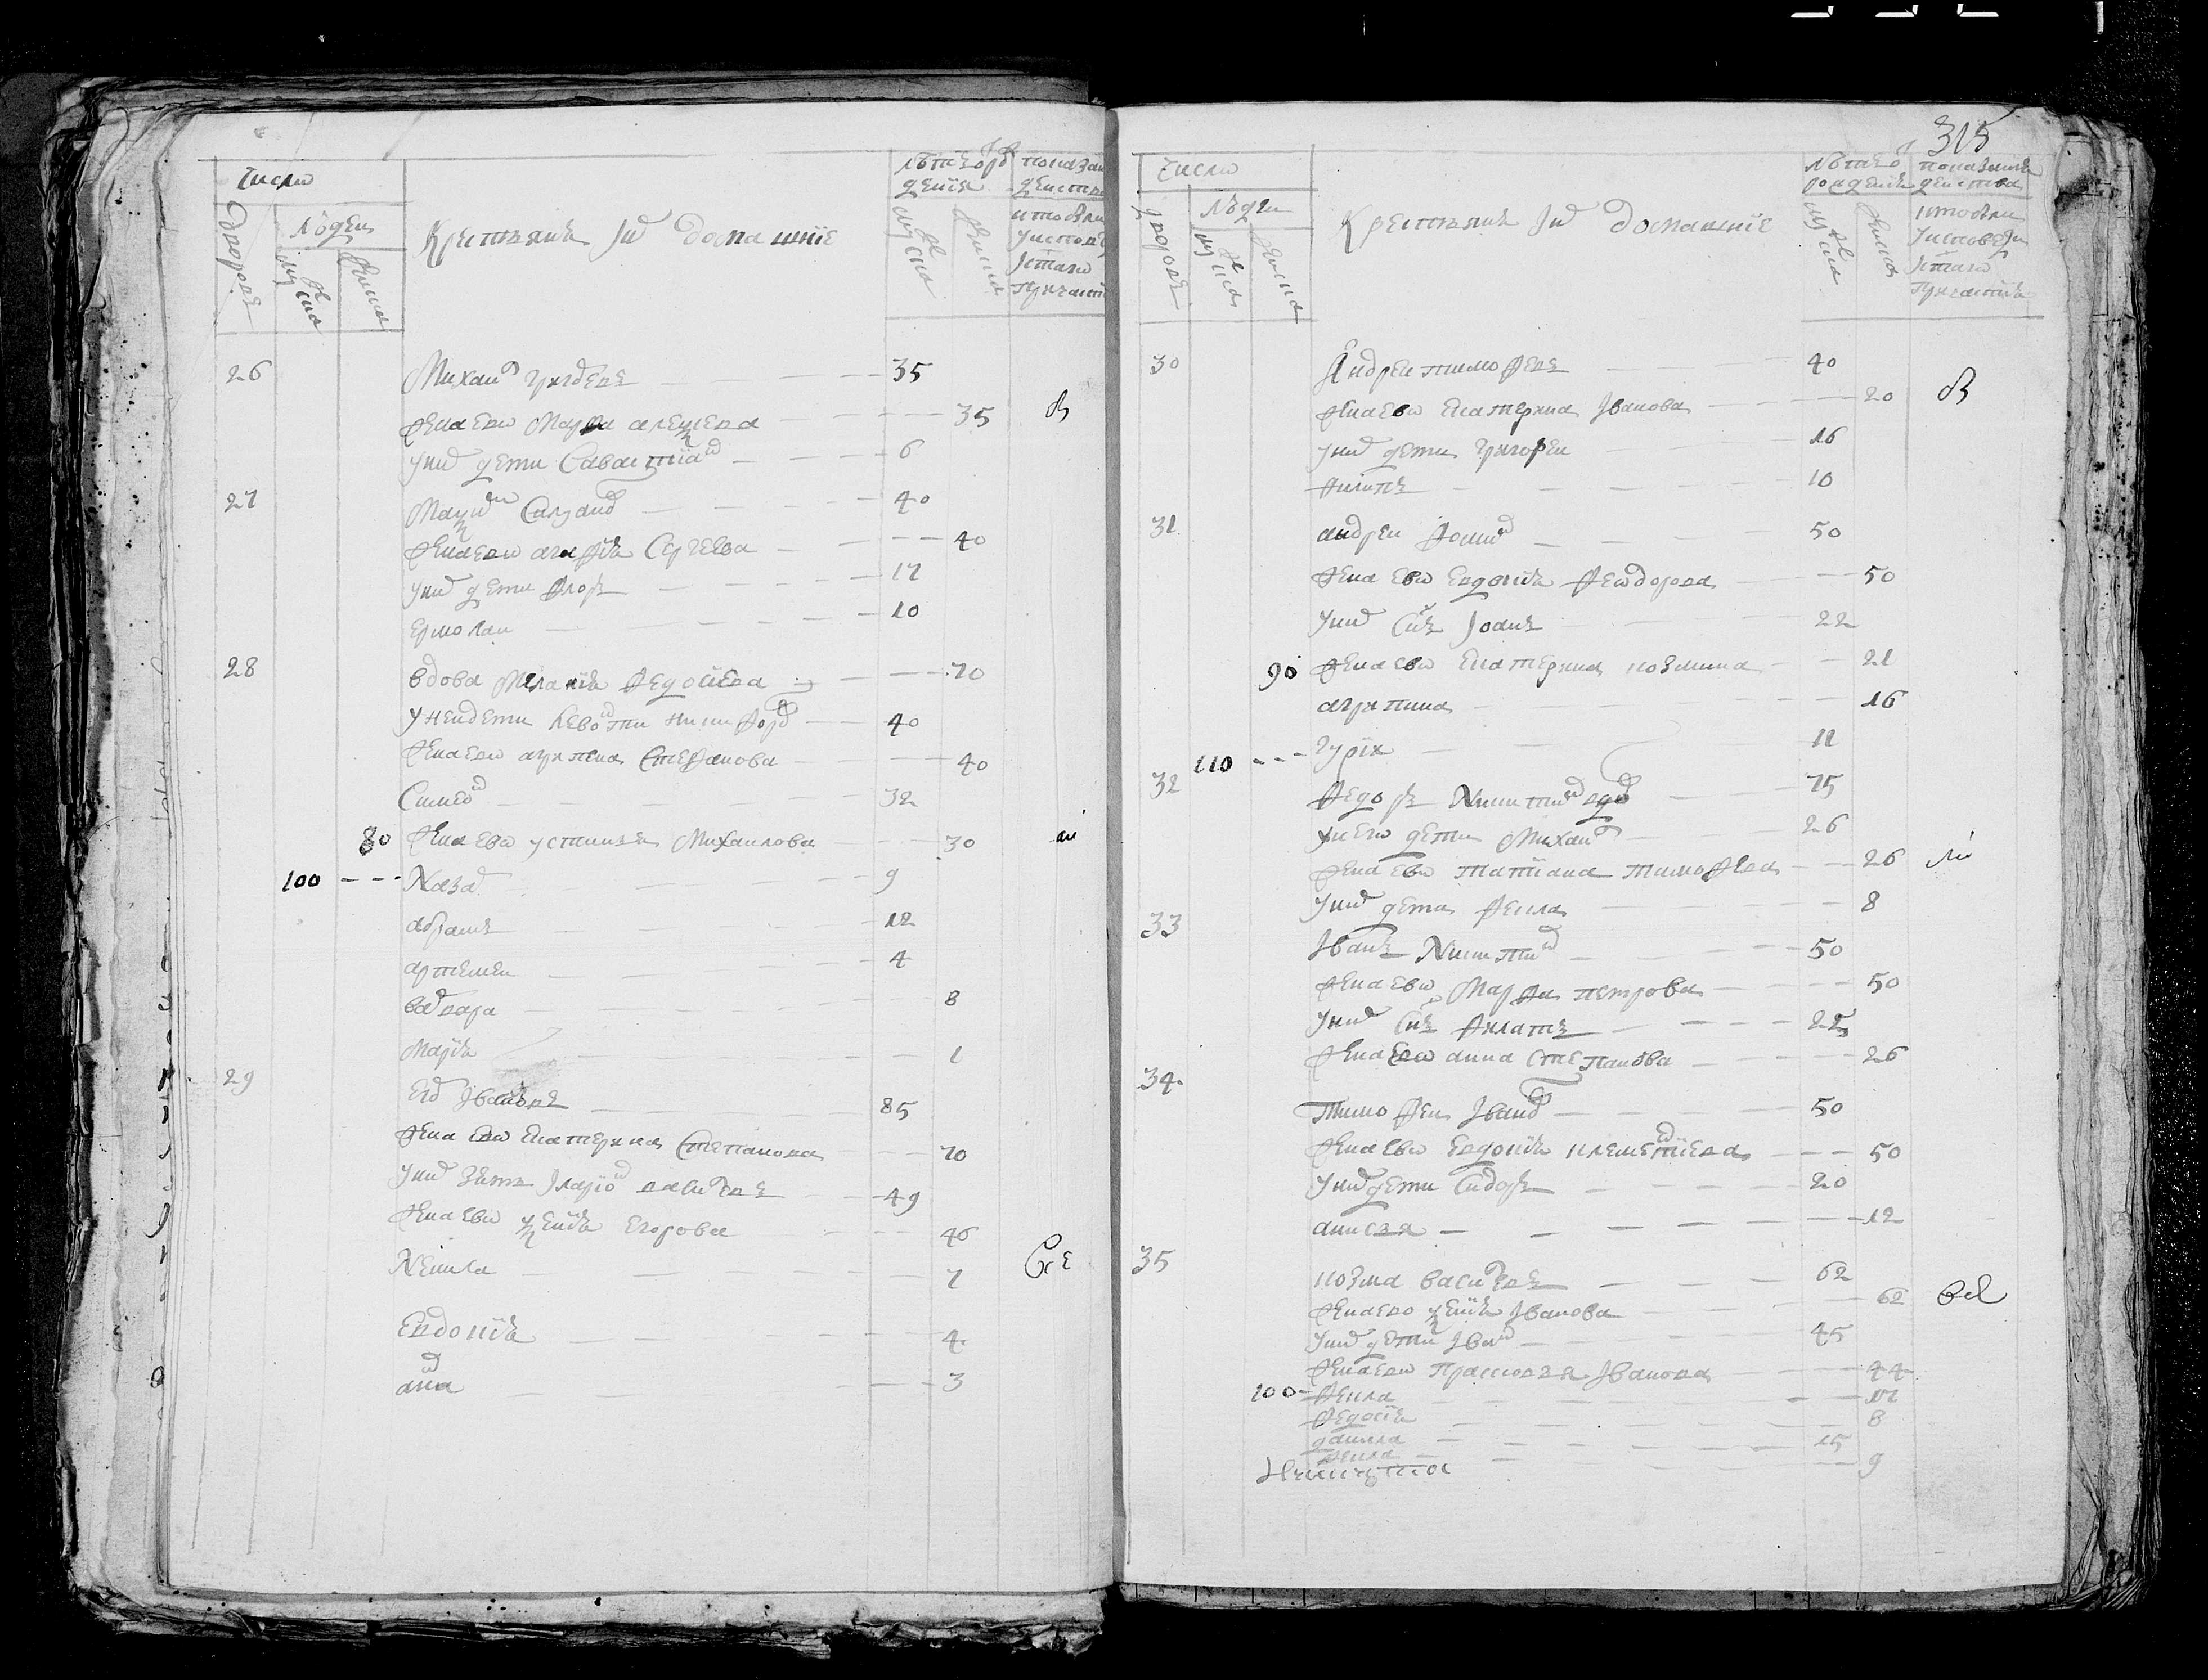 Число
дворовъ
людей
мужеска
женска
Крестьяне и домашнїе
лѣтъ рож
денїя
мужеска
женска
показан
действ
кто были
у испов
и таин
причаст
26 Михаил Григорьевъ 35
жена ево Марфа алеѯеева 35
у них дети Савастиан 6
27 Маѯим 40
жена ево агафїя Сергеева 40
у них дети Флоръ 17
ермолаи 10
28 вдова Меланїя 70
у неи дети 40
жена ево агрипена Стефанова 40
Симеон 32
80 жена ево устинья Михаилова 30
100 Назар 9
абрамъ 12
артемеи 4
варвара 8
Марїя 1
29 Иванъвъ 85
жена ево екатерина Степанова 70
у них зять Иларион васильевъ 49
жена ево ѯенїя егорова 46
7
евдокїя 4
анна 3
315
Число
дворовъ
людеи
мужеска
женска
Крестьяне и домашнїе
лѣтъ от
рожденїя
мужеска
женска
показанїя
действа
кто были
у исповеди
и таин
причастїя
30 Андреи тимофеевъ 40
жена ево екатерина Иванова 20
у них дети григореи 16
филипъ 10
31 андреи фомин 50
жена ево евдокїя феодорова 50
у них сынъ Иоанъ 22
90 жена ево екатерина козмина 21
агрипина 16
110 гурїи 11
32 федоръ Никитин вдов 75
у него дети Михаил 26
жена ево татїана тимофеева 26
у них дети фекла 8
33 Иванъ Никитин 50
жена ево Марфа петрова 50
у них сынъ филатъ 25
жена ево анна степанова 26
34 тимофеи Иванов 50
жена ево евдокїя клементїева 50
у них дети Сидоръ 20
анисья 12
35 козма васильевъ 62
жена ево ѯенїя Иванова 62
у них дети Иван 45
жена ево Прасковья Иванова 44
100 фекла
федосїя 8
данила 15
фекла 9